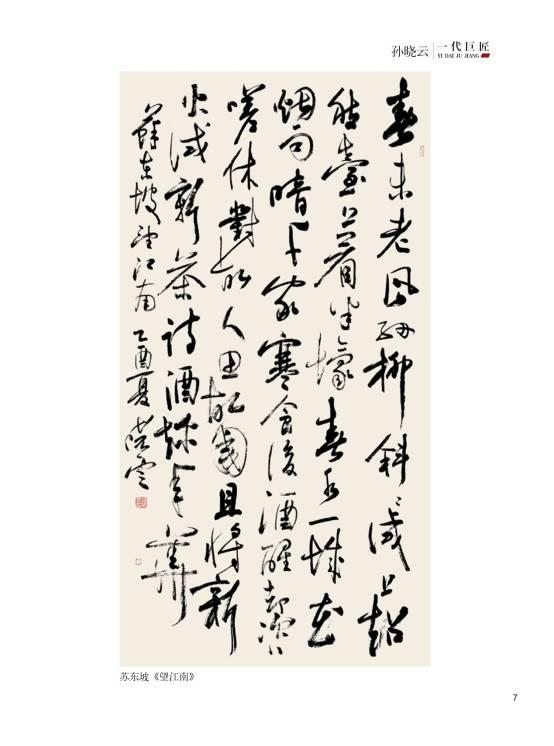 孙晓云
一代巨匠
YI DAI JU JIANG
春未老風細柳斜〻試上超
然臺上看半壕春水一城花
烟雨暗千家寒食後酒醒却咨
嗟休對故人思故國且將新
火試新茶詩酒趁年華
蘇東坡望江南 乙酉夏 曉雲
苏东坡《望江南》
7